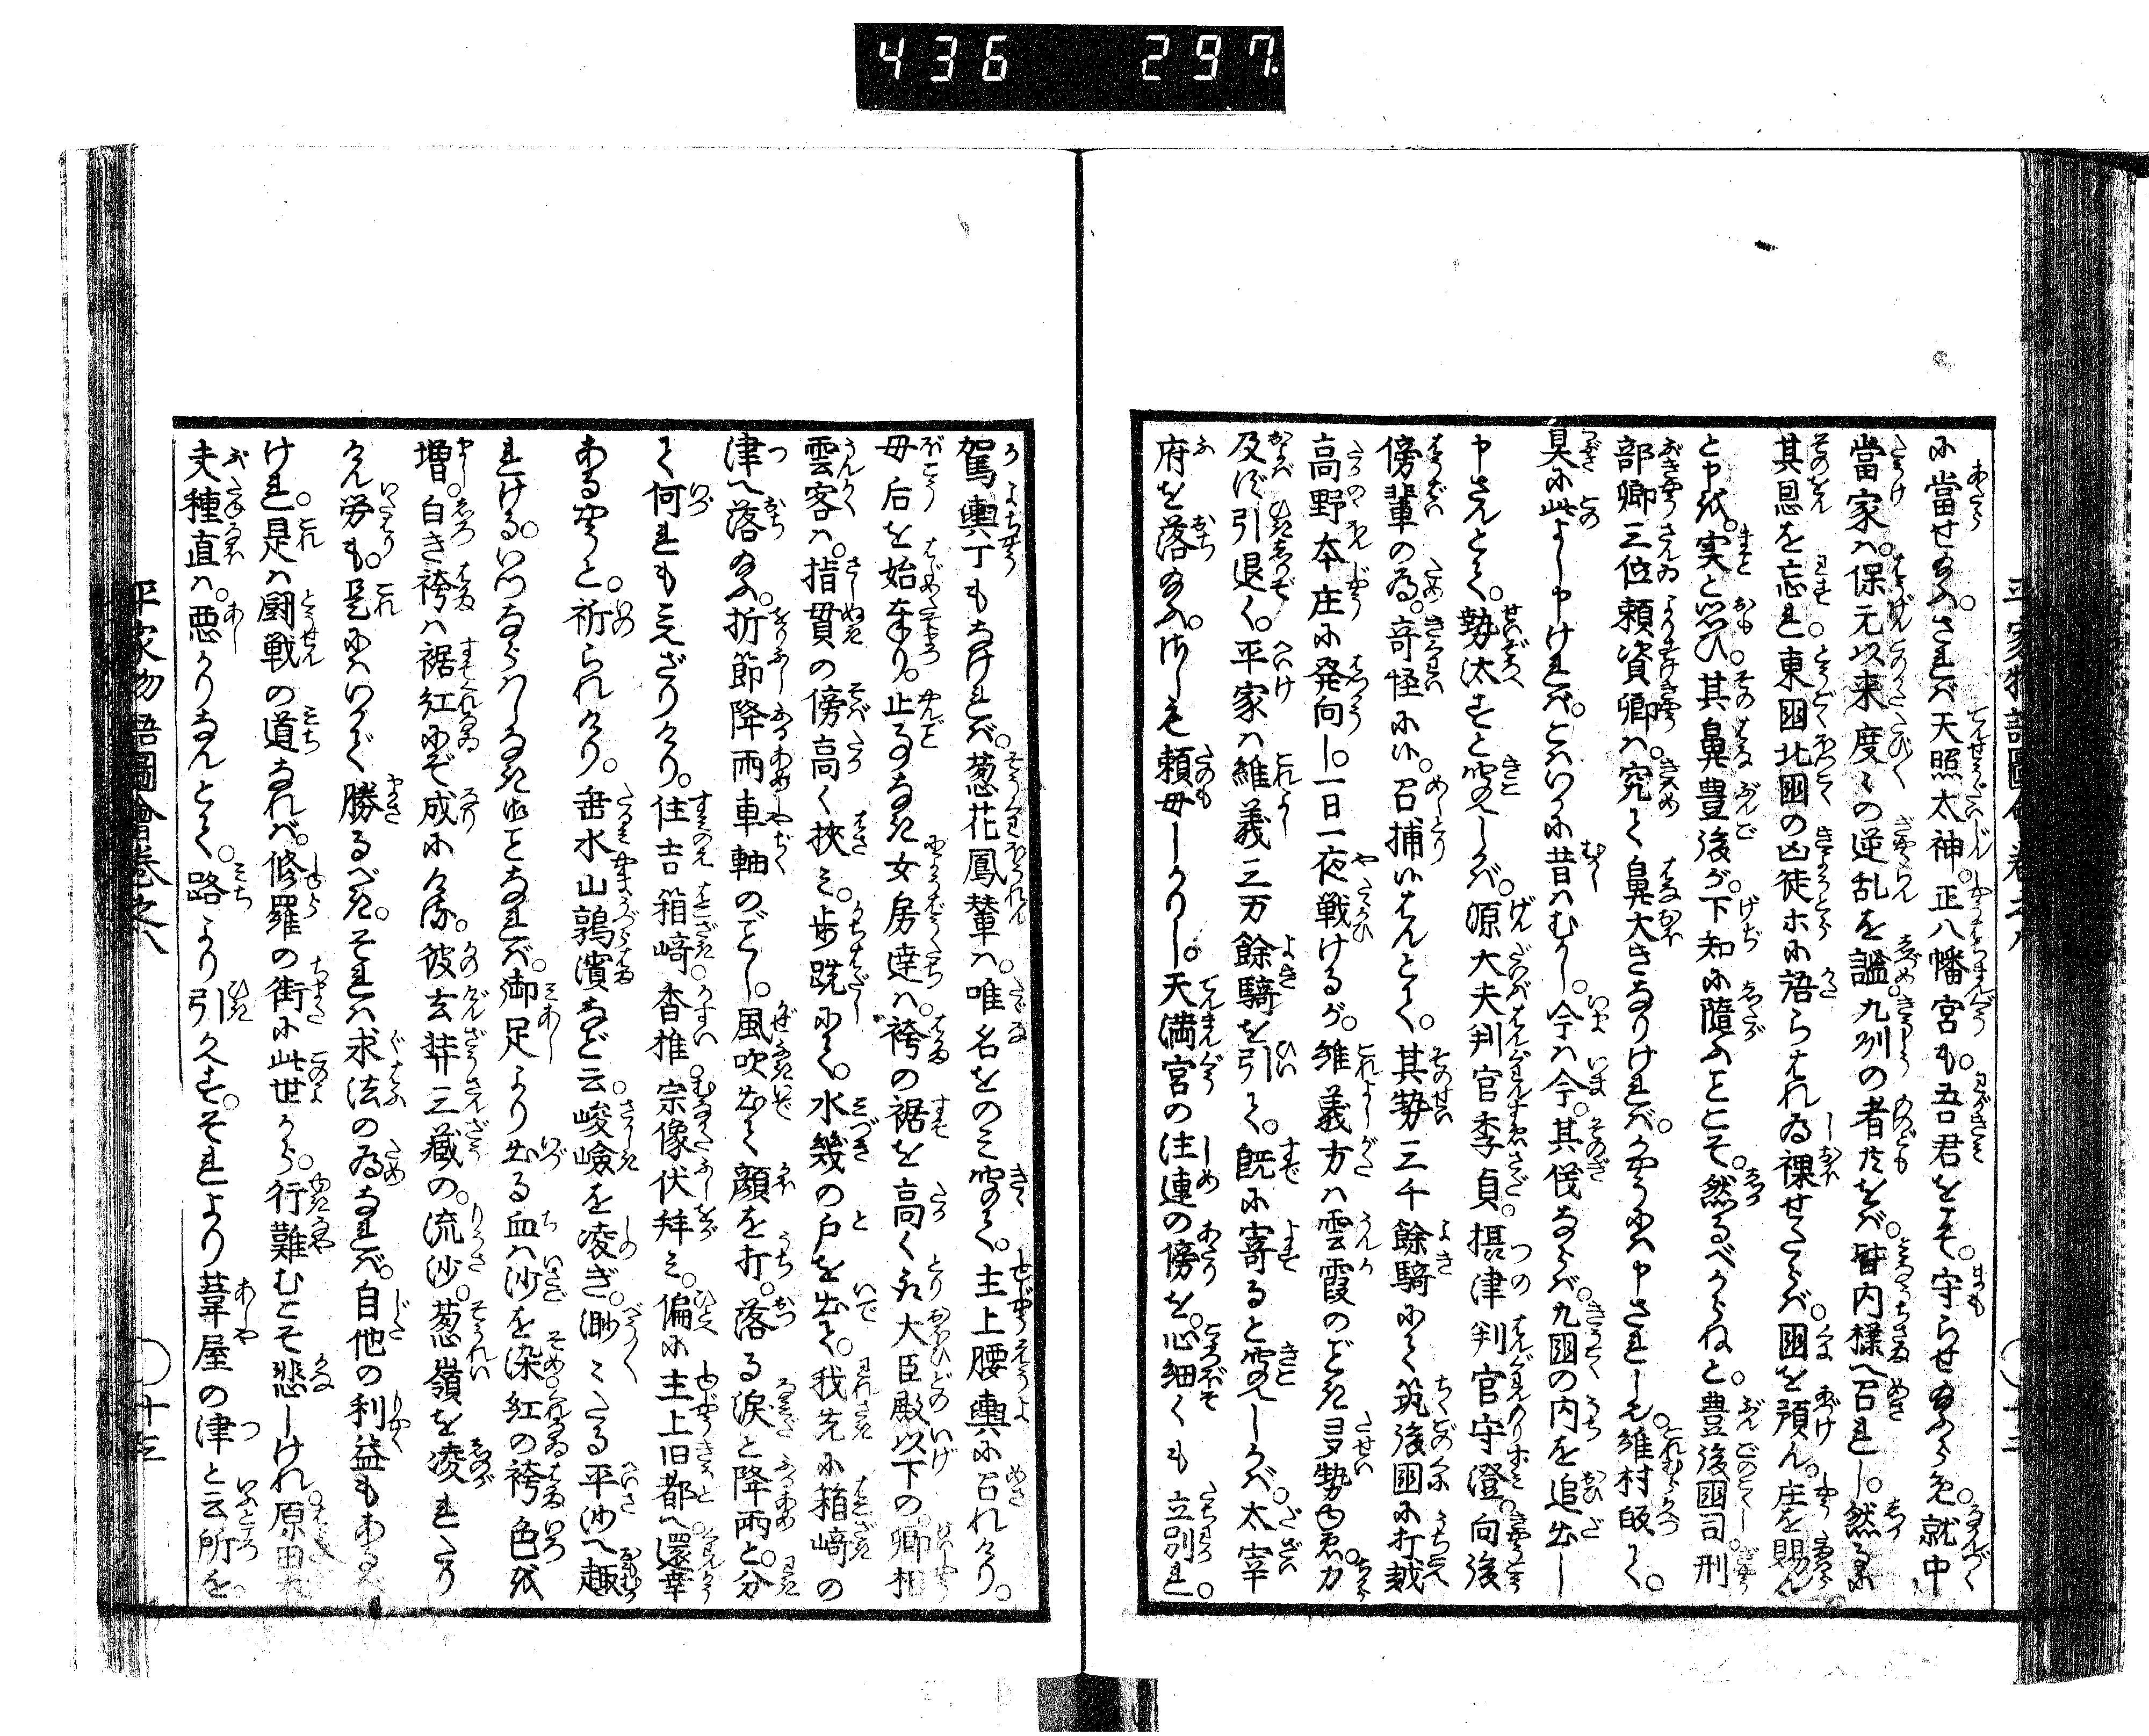 436 297
に當せ給ふ。されば天照太神。正八幡宮も。吾君をこそ。守らせ給ふらめ。就中
當家ハ。保元以来度〻の逆乱を謐。九州の者共をバ。皆内様へ召れし。然るに
其恩を忘れ。東國北國の凶徒ホに語らはれ。為課せたらバ。國を預ん。庄を賜ん
と申を。実と思ひ。其鼻豊後が。下知に随ふことこそ。然るべからねと。豊後國司刑
部卿三位頼資卿ハ。究て鼻大きなりければ。かやうにハ申されしも。維村皈て。
具に此よし申ければ。こハいかに昔ハむかし。今ハ今。其儀ならバ。九國の内を追出し
申さんとて。勢太すと聞えしかバ。源大夫判官季貞。摂津判官守澄。向後
傍輩の為。奇怪に候。召捕候はんとて。其勢三千餘騎にて。筑後國に打越
高野本庄に発向し。一日一夜戦けるが。維義方ハ雲霞のごとき多勢なれバ。力
及ばず引退く。平家ハ維義三万餘騎を引て。既に寄ると聞えしかバ。太宰
府を落給ふ。さしも頼母しかりし。天満宮の注連の傍を。心細くも立別れ。
駕輿丁もなければ。葱花鳳輦ハ。唯名をのミ聞て。主上腰輿に召れけり。
母后を始奉り。止事なき女房達ハ。袴の裾を高く取。大臣殿以下の卿相
雲客ハ。指貫の傍高く挾ミ。歩跣にて。水幾の戸を出て。我先に箱﨑の
津へ落給ふ。折節降雨車軸のごとし。風吹出て顔を打。落る涙と降雨と。分
て何れも見えざりけり。住吉箱﨑。香椎。宗像伏拜ミ。偏に主上旧都へ還幸
あるやうと。祈られけり。垂水山鶉濱など云。峻嶮を凌ぎ。渺〻たる平沙へ趣
れける。いつならハしなき御ことなれば。御足より出る血ハ沙を染。紅の袴色を
増。白き袴ハ裾紅にぞ成にける。彼玄弉三蔵の。流沙。葱嶺を凌れたり
けん労も。是にハいかで勝るべき。それハ求法の為なれば。自他の利益もあるべ
けれ。是ハ闘戦の道なれバ。修羅の街に此世から。行難むこそ悲しけれ。原田大
夫種直ハ。悪かりなんとて。路より引かへす。それより葦屋の津と云所を
平家物語圖會巻之八 十三